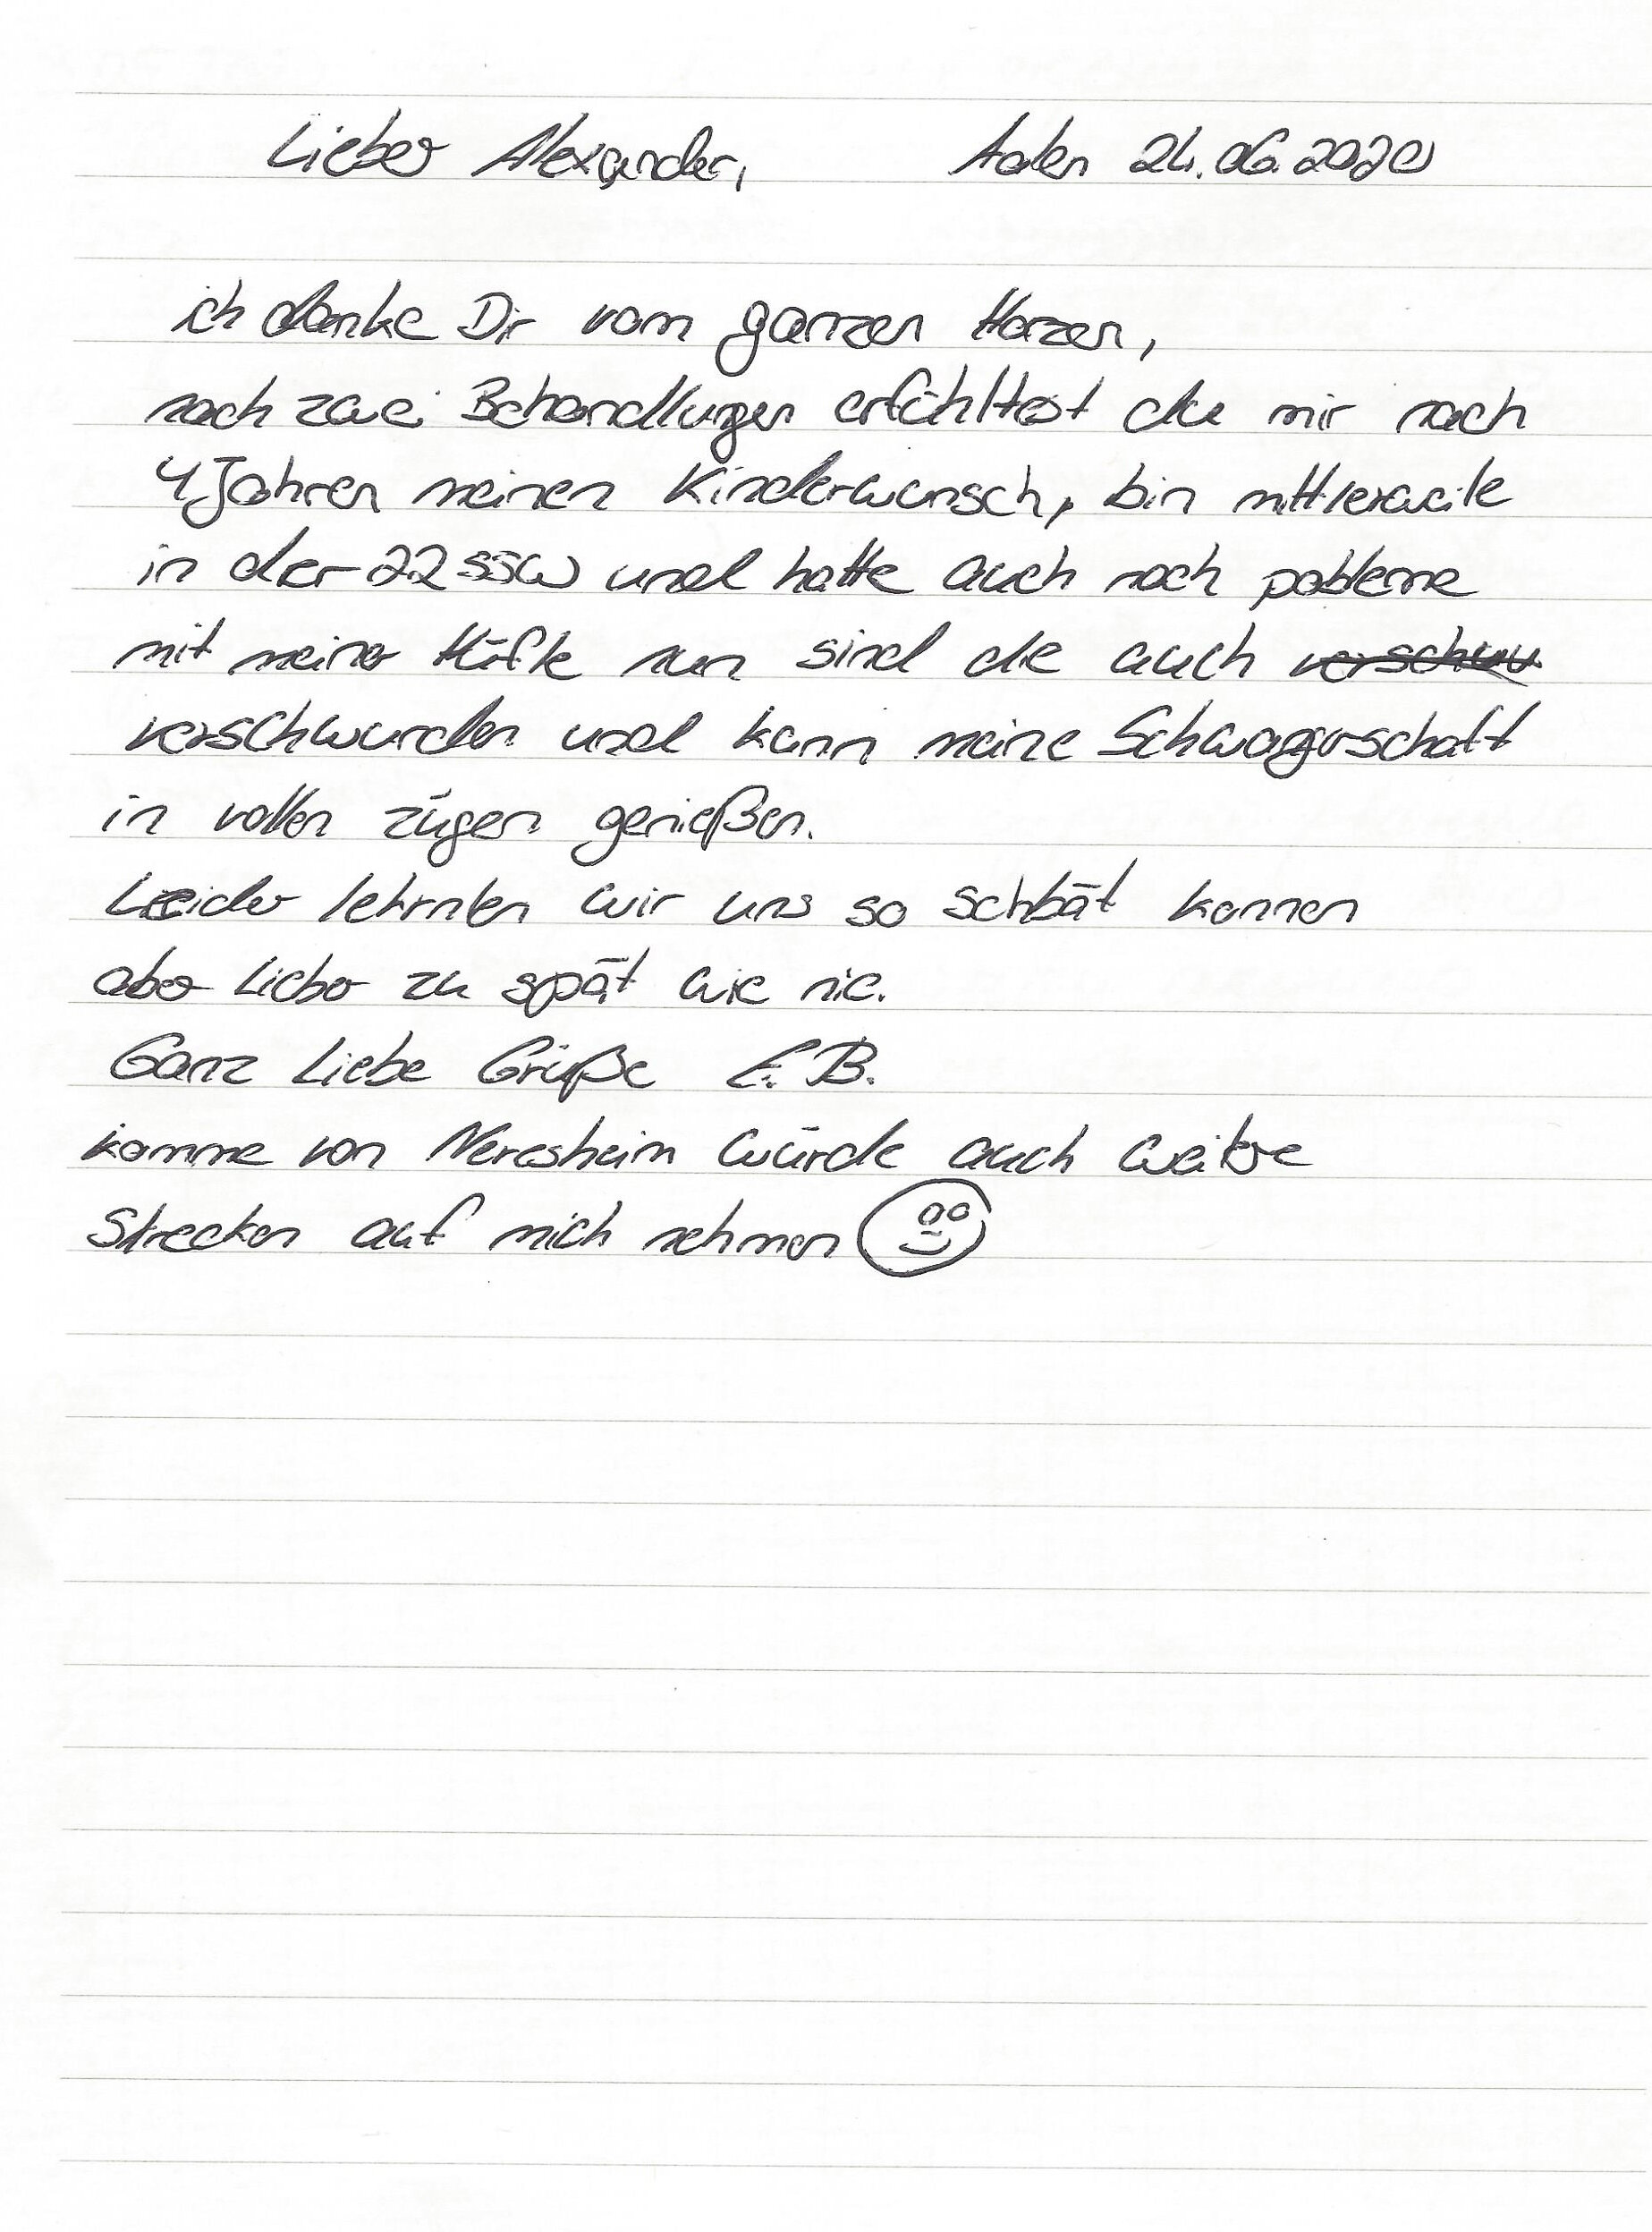 Lieber Alexander, Aalen 24.06.2020
ich danke Dir vom ganzen Herzen,
nach zwei Behandlungen erfühltest du mir nach
4 Jahren meinen Kinderwunsch, bin mittlerweile
in der 22 SSW und hatte auch noch pobleme
mit meiner Hüfte nun sind die auch
verschwunden und kann meine Schwangerschaft
in vollen zügen genießen.
Leider lehrnten wir uns so schbät kennen
aber Lieber zu spät wie nie.
Ganz Liebe Grüße E.B.
komme von Neresheim würde auch weitere
Strecken auf mich nehmen